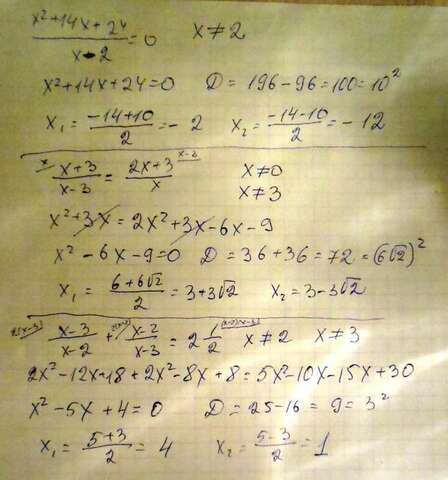 x²+14x+24 / x-2 = 0   x≠2
x²+14x+24=0   D=196-96=100=10²
x₁= -14+10 / 2 = -2   x₂= -14-10 / 2 = -12
x x+3 / x-3 = 2x+3 / x x-3   x≠0
x≠3
x²+3x=2x²+3x-6x-9
x²-6x-9=0   D=36+36=72=(6√2)²
x₁= 6+6√2 / 2 = 3+3√2   x₂=3-3√2
x-3 / x-2 + x-2 / x-3 = 2 1/2   x≠2   x≠3
2x²-12x+18+2x²-8x+8=5x²-10x-15x+30
x²-5x+4=0   D=25-16=9=3²
x₁= 5+3 / 2 = 4   x₂= 5-3 / 2 = 1